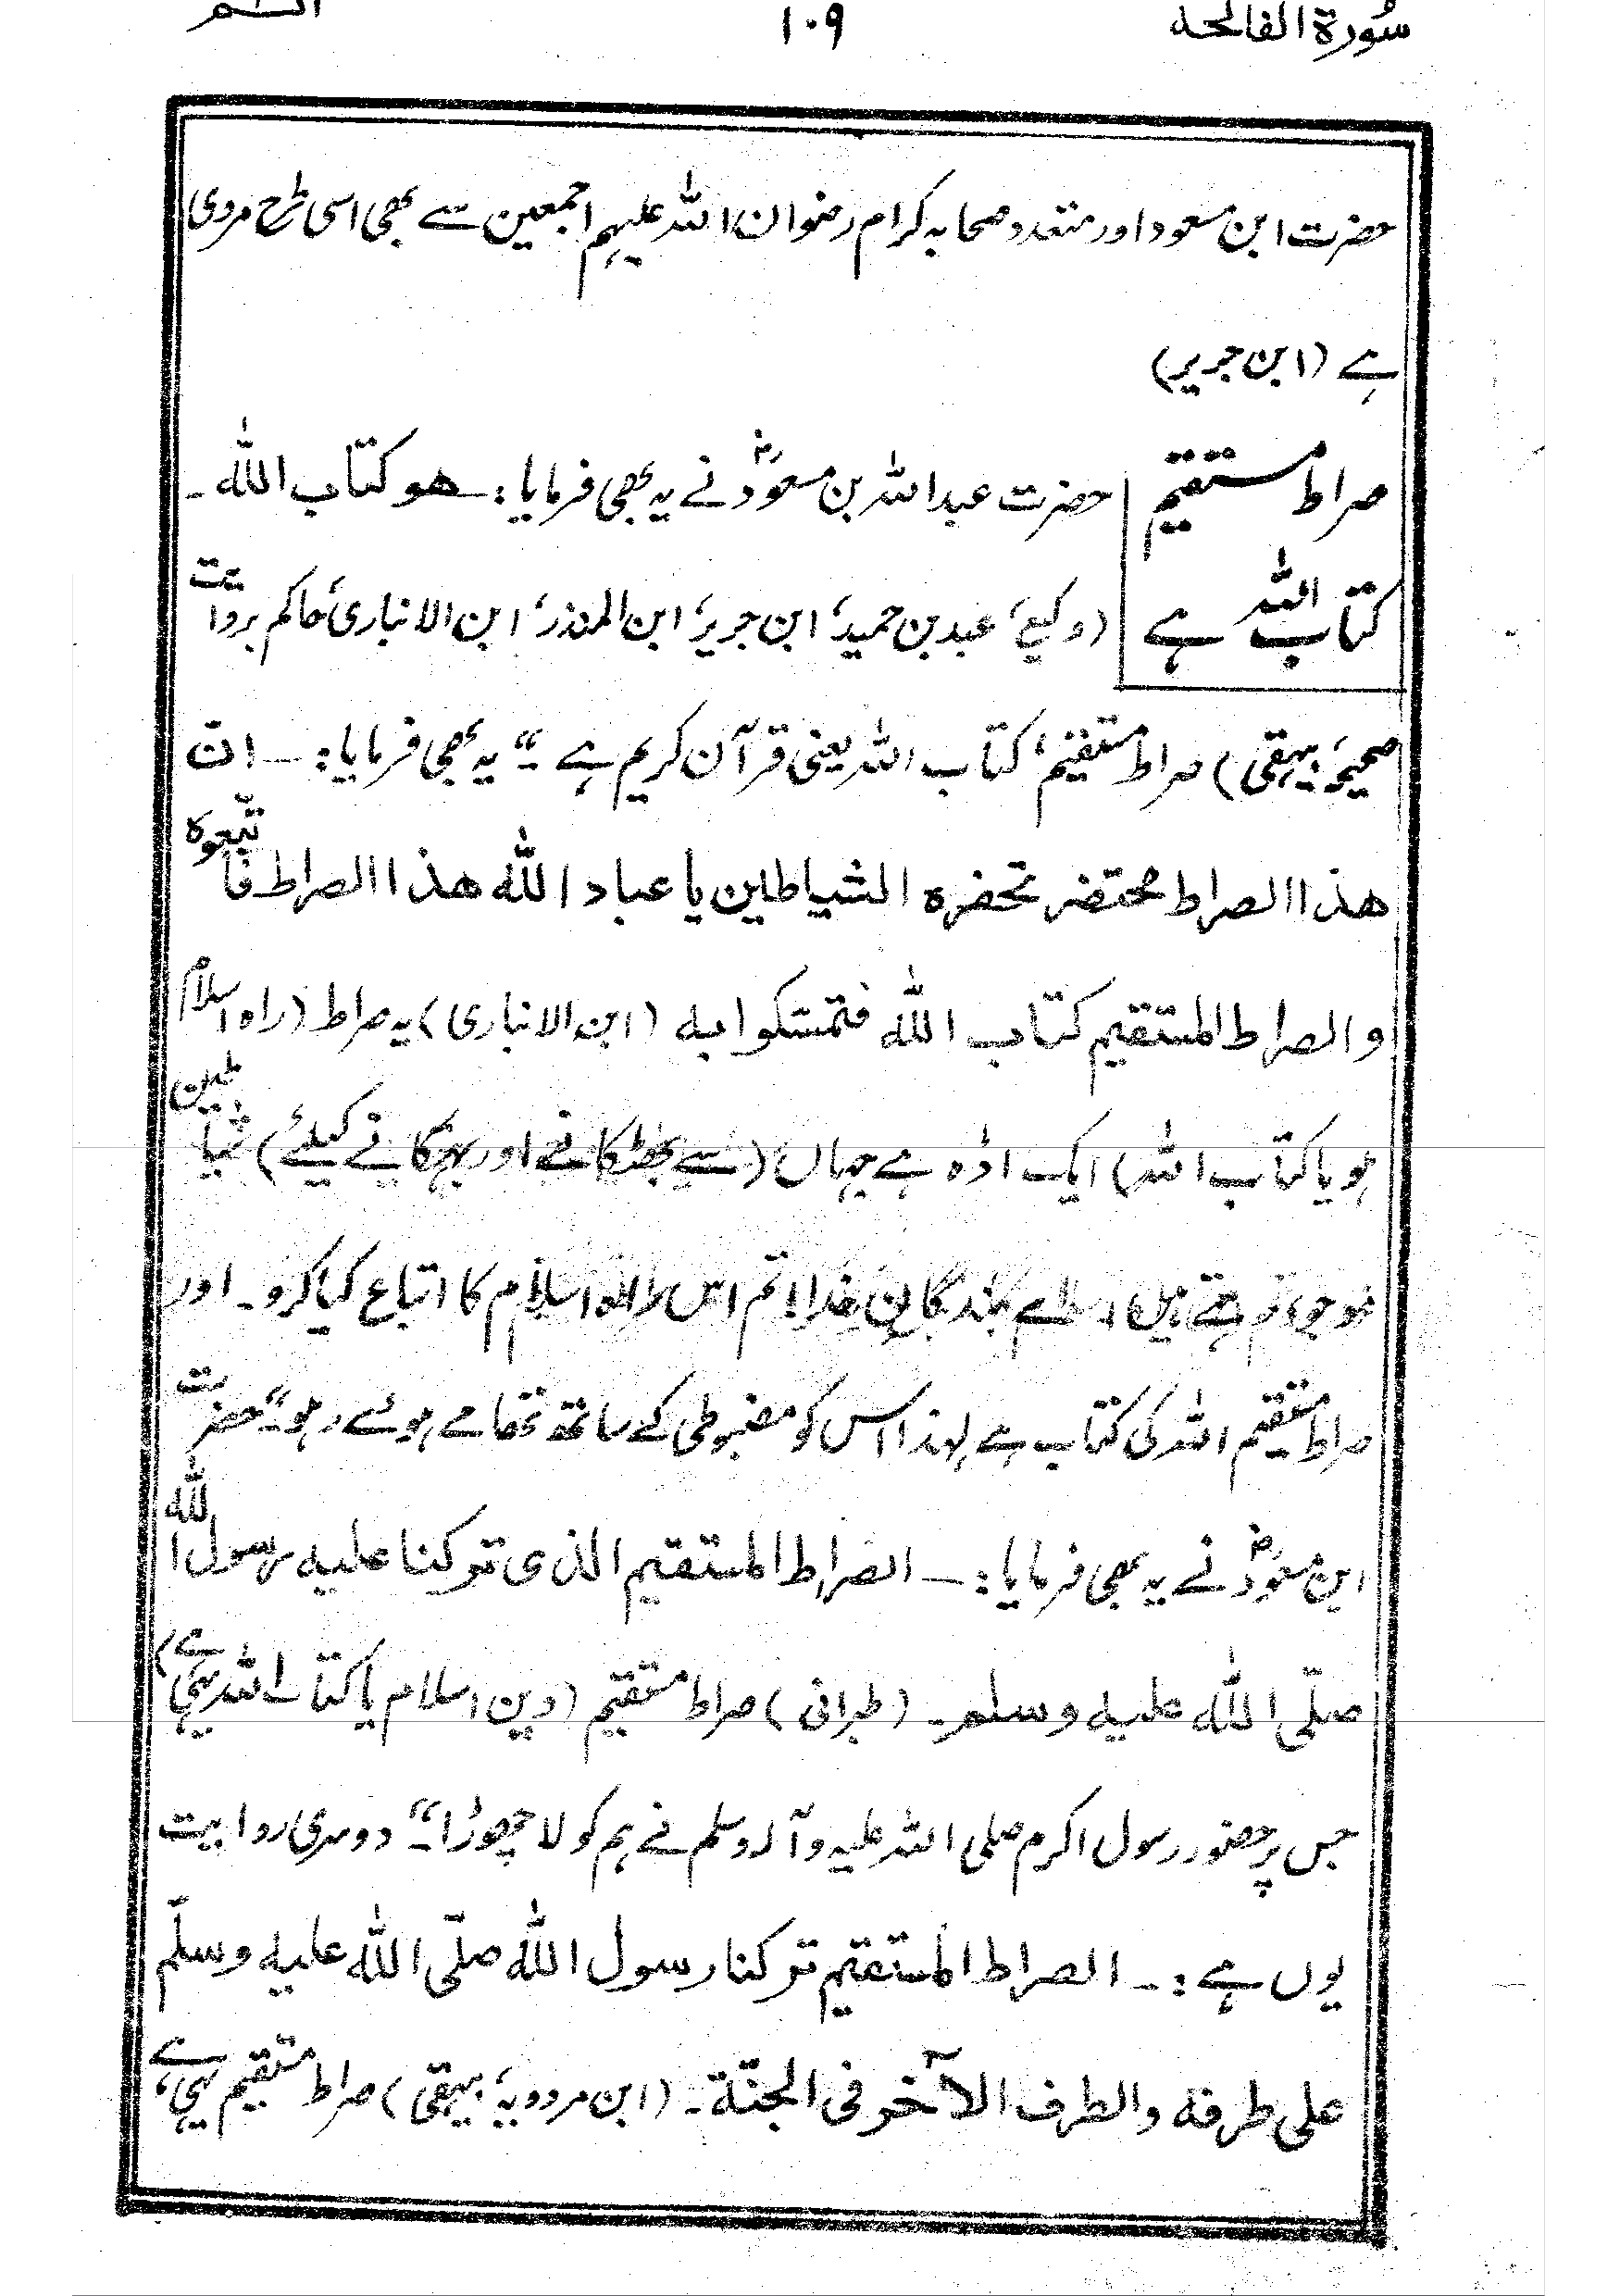 سُورة الفاتحہ ۱۰۹ الٓـمّٓ
حضرت ابن مسعود اور متعدد صحابہ کرام رضوان اللہ علیہم اجمعین سے بھی اسی طرح مروی
ہے (ابن جریر)
صراط مستقیم
کتاب اللہ ہے
حضرت عبداللہ بن مسعودؓ نے یہ بھی فرمایا:۔ ھو کتاب اللہ ۔
(وکیع، عبد بن حمید، ابن جریر، ابن المنذر، ابن الانباری، حاکم بروایت
صحیح، بیہقی) صراط مستقیم، کتاب اللہ یعنی قرآن کریم ہے ۔" یہ بھی فرمایا:۔ انّ
ھذا الصراط مُحتضر تحضرہ الشیاطین یا عباد اللہ ھذا الصراط فاتّبعوہ
والصراط المستقیم کتاب اللہ فتمسّکوا بہ (ابن الانباری) یہ صراط (راہ اسلام
ہو یا کتاب اللہ) ایک اڈہ ہے جہاں (سے بھٹکانے اور بہکانے کیلئے) شیاطین
موجود رہتے ہیں۔ اے بندگانِ خدا! تم اس راہ اسلام کا اتباع کیا کرو۔ اور
صراط مستقیم اللہ کی کتاب ہے لہٰذا اس کو مضبوطی کے ساتھ تھامے ہوئے رہو۔" حضرت
ابن مسعودؓ نے یہ بھی فرمایا:۔ الصراط المستقیم الذی ترکنا علیہ رسول اللہ
صلّی اللہ علیہ وسلم۔ (طبرانی) صراط مستقیم (دین اسلام یا کتاب اللہ یہی ہے)
جس پر حضور رسول اکرم صلی اللہ علیہ وآلہ وسلم نے ہم کو لا چھوڑا۔" دوسری روایت
یوں ہے:۔ الصراط المستقیم ترکنا رسول اللہ صلّی اللہ علیہ وسلّم
علی طرفہ والطرف الآخر فی الجنّۃ۔ (ابن مردویہ، بیہقی) صراط مستقیم یہی ہے،